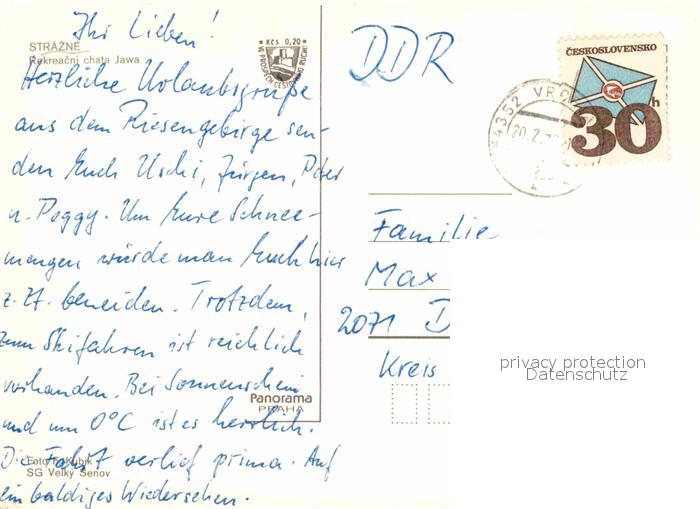 Ihr Lieben!
STRÁŽNÉ
Rekreační chata Jawa
Herzliche Urlaubsgrüße
aus dem Riesengebirge sen-
den Euch Uschi, Jürgen, Peter
u. Peggy. Um Eure Schnee-
mengen würde man Euch hier
z. Zt. beneiden. Trotzdem,
zum Skifahren ist reichlich
vorhanden. Bei Sonnenschein
und um 0°C ist es herrlich.
Die Fahrt verlief prima. Auf
ein baldiges Wiedersehen.
Foto F. Kubík
SG Velký Šenov
Panorama
PRAHA
Kčs 0,20
DDR
ČESKOSLOVENSKO
30h
4352 VRC
20.2.7
Familie
Max
2071 D
Kreis
privacy protection
Datenschutz